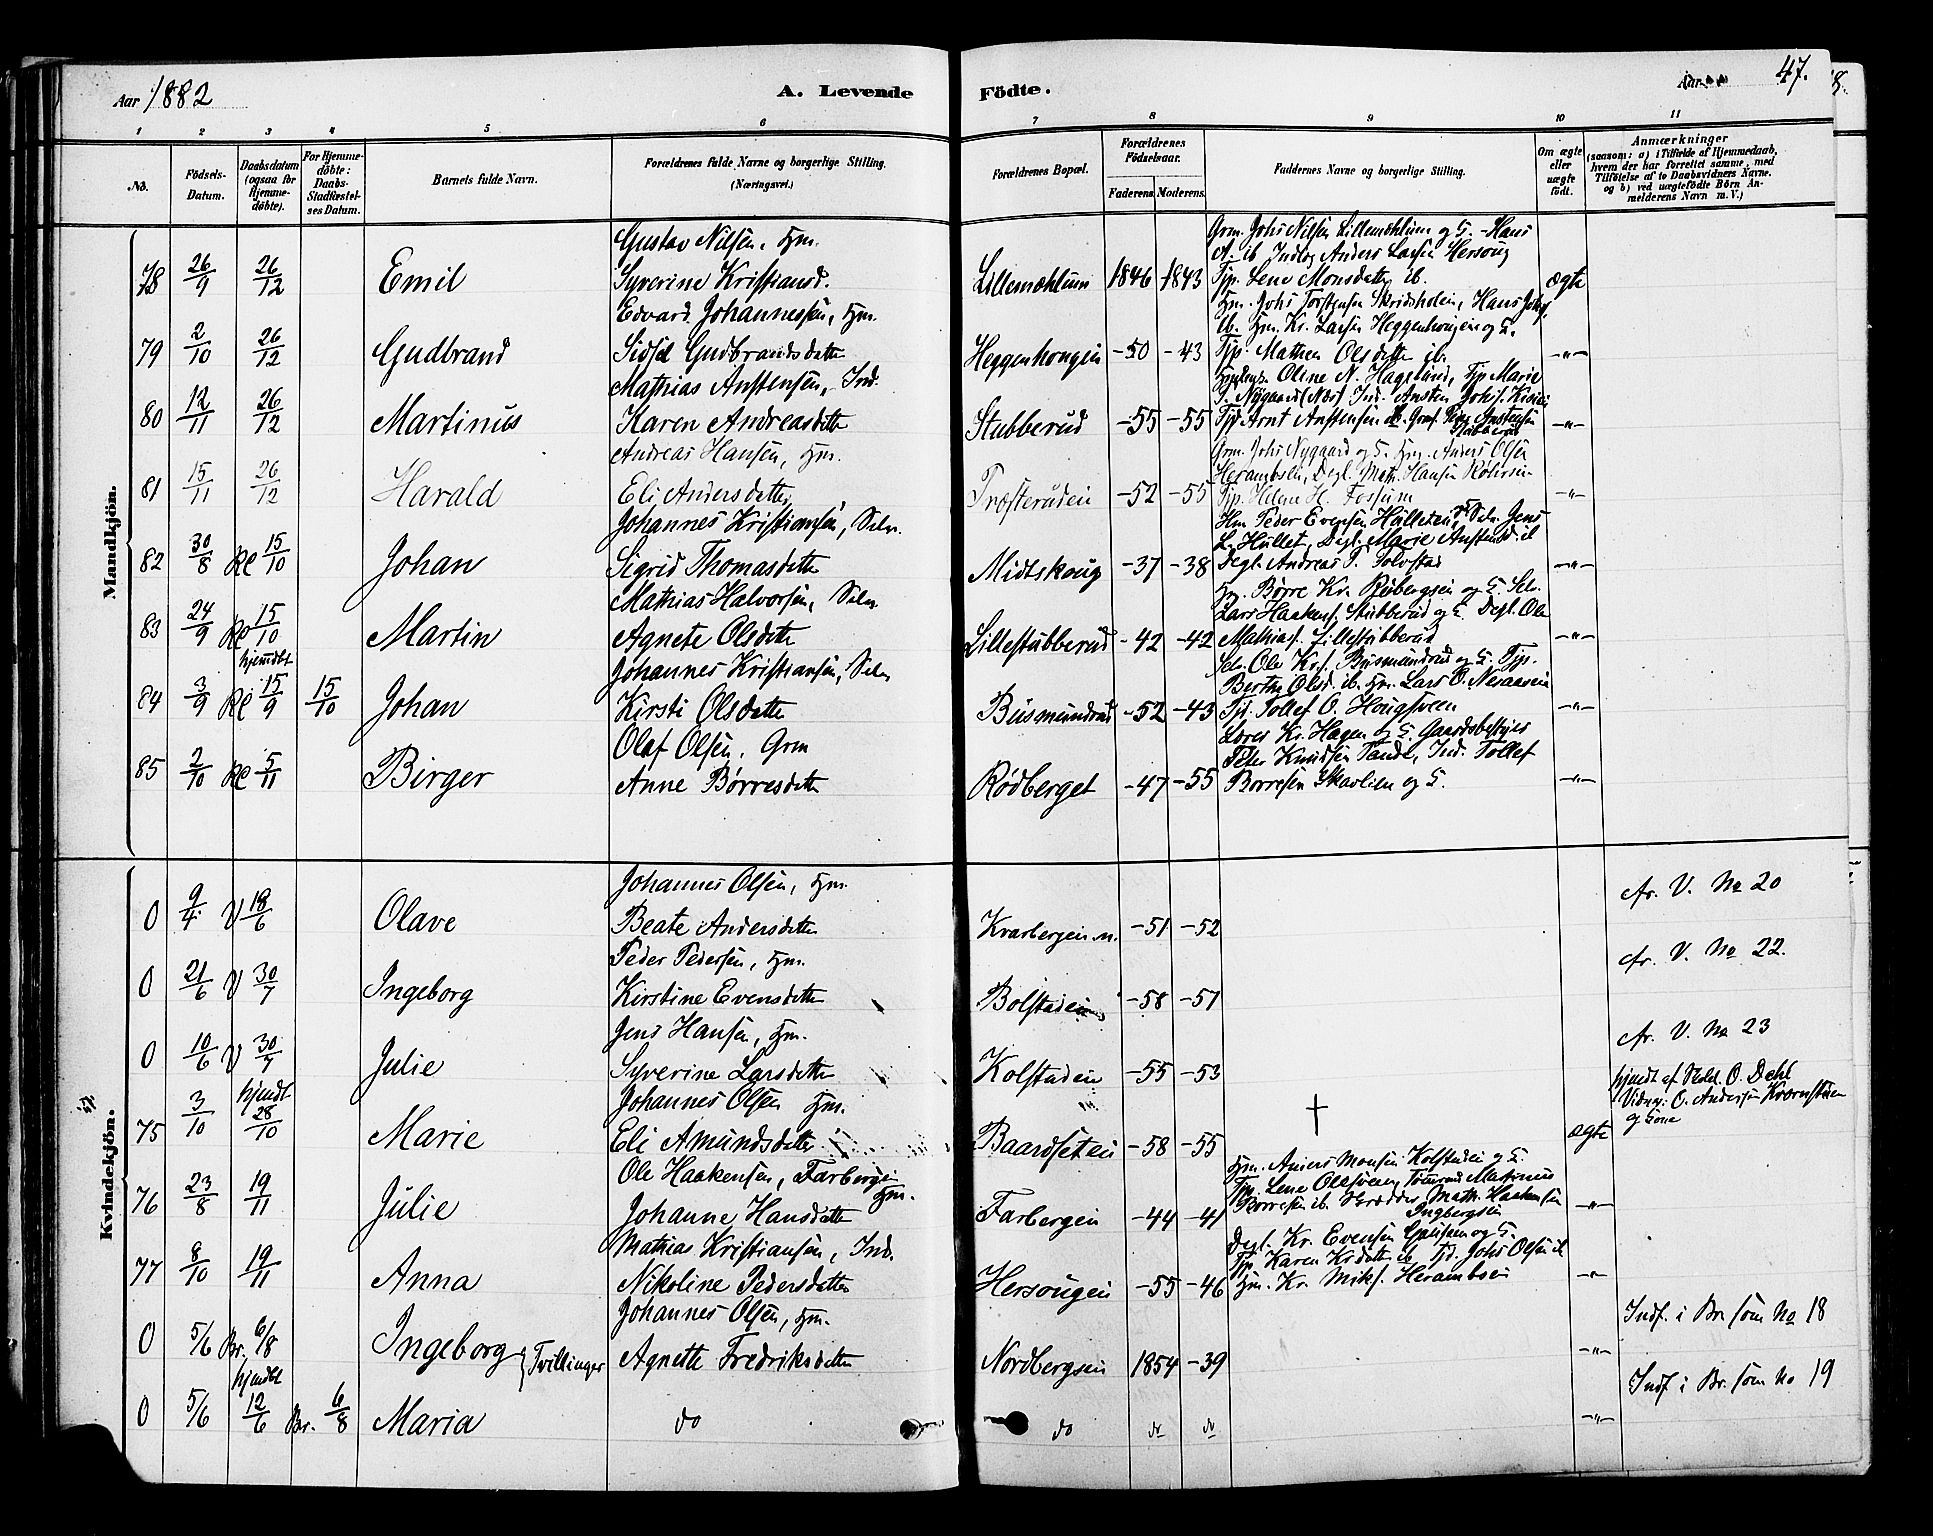 Aar 1882
A. Levende
Födte.
Aar
47.
1 2 3 4 5 6 7 8 9 10 11
No.
Födsels-Datum.
Daabsdatum (ogsaa for Hjemmedöbte).
For Hjemmedöbte: Daabs-Stadfæstelses Datum.
Barnets fulde Navn.
Forældrenes fulde Navne og borgerlige Stilling. (Næringsvei.)
Forældrenes Bopæl.
Forældrenes Födselsaar.
Faderens. Moderens.
Faddernes Navne og borgerlige Stilling.
Om ægte eller uægte født.
Anmærkninger
(saasom: a) i Tilfælde af Hjemmedaab, hvem der har forrettet samme, med Tilföielse af to Daabsvidners Navne, og b) ved uægtefödte Börn Anmelderens Navn m. V.)
Mandkjön.
78 26/9 26/12 Emil
Gustav Nilsen, Hm.
Syverine Kristiansd.
Lillemæhlum 1846 1843
Grm. Johs Nilsen Lillemæhlum og G. - Hans
A. ib Inds Anders Larsen Hersoug
Tjp. Lene Monsdatter ib.
ægte
79 2/10 26/12 Gudbrand
Edvard Johannessen, Hm.
Sidsel Gudbrandsdatter
Heggenhougen -50 -43
Hm. Johs Torstensen Skridsholen, Hans Johs
ib. Hm. Kr. Larsen Heggenhougen og G.
Tjp. Mathea Olsdatter ib.
-"-
80 12/11 26/12 Martinus
Mathias Anstensen, Ind.
Karen Andreasdatter
Stubberud -55 -55
Oline N. Hagelund, Tjp Marie
J. Nygaard Ind. Ansten Johs.
Tjd Arnt Anstensen ib. Peder Anstensen
Stubberud
-"-
81 15/11 26/12 Harald
Andreas Hansen, Hm.
Eli Andersdatter
Træsteruden -52 -55
Grm. Johs Nygaard og G. Hm. Anders Olsen
Herambsen, Degl. Math. Hansen
Tjp. Helene H. Fossum
-"-
82 30/8 Re 15/10 Johan
Johannes Kristiansen, Selv.
Sigrid Thomasdatter
Midtskoug -37 -38
Hm. Peder Evensen Hulleten, Selv. Jens
L. Hullet, Degl. Marie Anstensd. ib
Degl. Andreas P. Tolvstad
-"-
83 24/9 Re 15/10 Martin
Mathias Halvorsen, Selv.
Agnete Olsdatter
Lillestubberud -42 -42
Hm. Børre Kr. Rødbergsen og G. Selv.
Lars Haakens. Stubberud og G. Degl. Ole
Mathias. Lillestubberud
-"-
84 3/9 hjemdbt Re 15/9 15/10 Johan
Johannes Kristiansen, Selv
Kirsti Olsdatter
Busmundrud -52 -43
Selv. Ole Krs. Busmundrud og G. Tjp.
Berthe Olsd. ib. Hm. Lars O. Nesaasen
Tjd. Tollef O. Hougsveen
-"-
85 2/10 Re 5/11 Birger
Olaf Olsen, Grm
Anne Børresdatter
Rødberget -47 -55
Lærer Kr. Hagen og G. Gaardsbestyrer
Peter Knudsen Sande, Ind. Tollef
Børresen Skavlien og G.
-"-
Kvindekjön.
0 9/4 V 18/6 Olave
Johannes Olsen, Hm.
Beate Andersdatter
Kvarbergen n. -51 -52
Av. V. No 20
0 21/6 V 30/7 Ingeborg
Peder Pedersen, Hm.
Kirstine Evensdatter
Bolstaden -58 -57
Av. V. No 22.
0 10/6 V 30/7 Julie
Jens Hansen, Hm.
Syverine Larsdatter
Kolstaden -55 -53
Av. V. No 23
75 3/10 hjemdt 28/10 Marie
Johannes Olsen Hm.
Eli Amundsdatter
Baardseteien -58 -55
†
ægte
hjemdt af Skol. O. Dehl
Vidner: O. Andersen Kvernstuen
og Kone
76 23/8 19/11 Julie
Ole Haakensen, Farbergen Hm.
Johanne Hansdatter
Farbergen -44 -41
Hm. Anders Monsen Kolstaden og G.
Tjp. Lene Olesveen, Mathinus
Børresen ib. Math. Haakensen
Ingbergsen
-"-
77 8/10 19/11 Anna
Mathias Kristiansen, Ind.
Nikoline Pedersdatter
Hersougen -55 -46
Degl. Kr. Evensen og G.
Tjp. Karen Krdatter ib Tjd. Johs Olsen ib
Hm. Kr. Miks. Herambsen
-"-
0 5/6 Br. 6/8 Ingeborg } Tvillinger
Johannes Olsen, Hm.
Agnette Fredriksdatter
Nordbergsen 1854 -39
-"-
Indf. i Br. som No 18
0 5/6 hjemdbt 12/6 Br. 6/8 Maria
do
do do do
-"-
Indf. i Br. som No 19